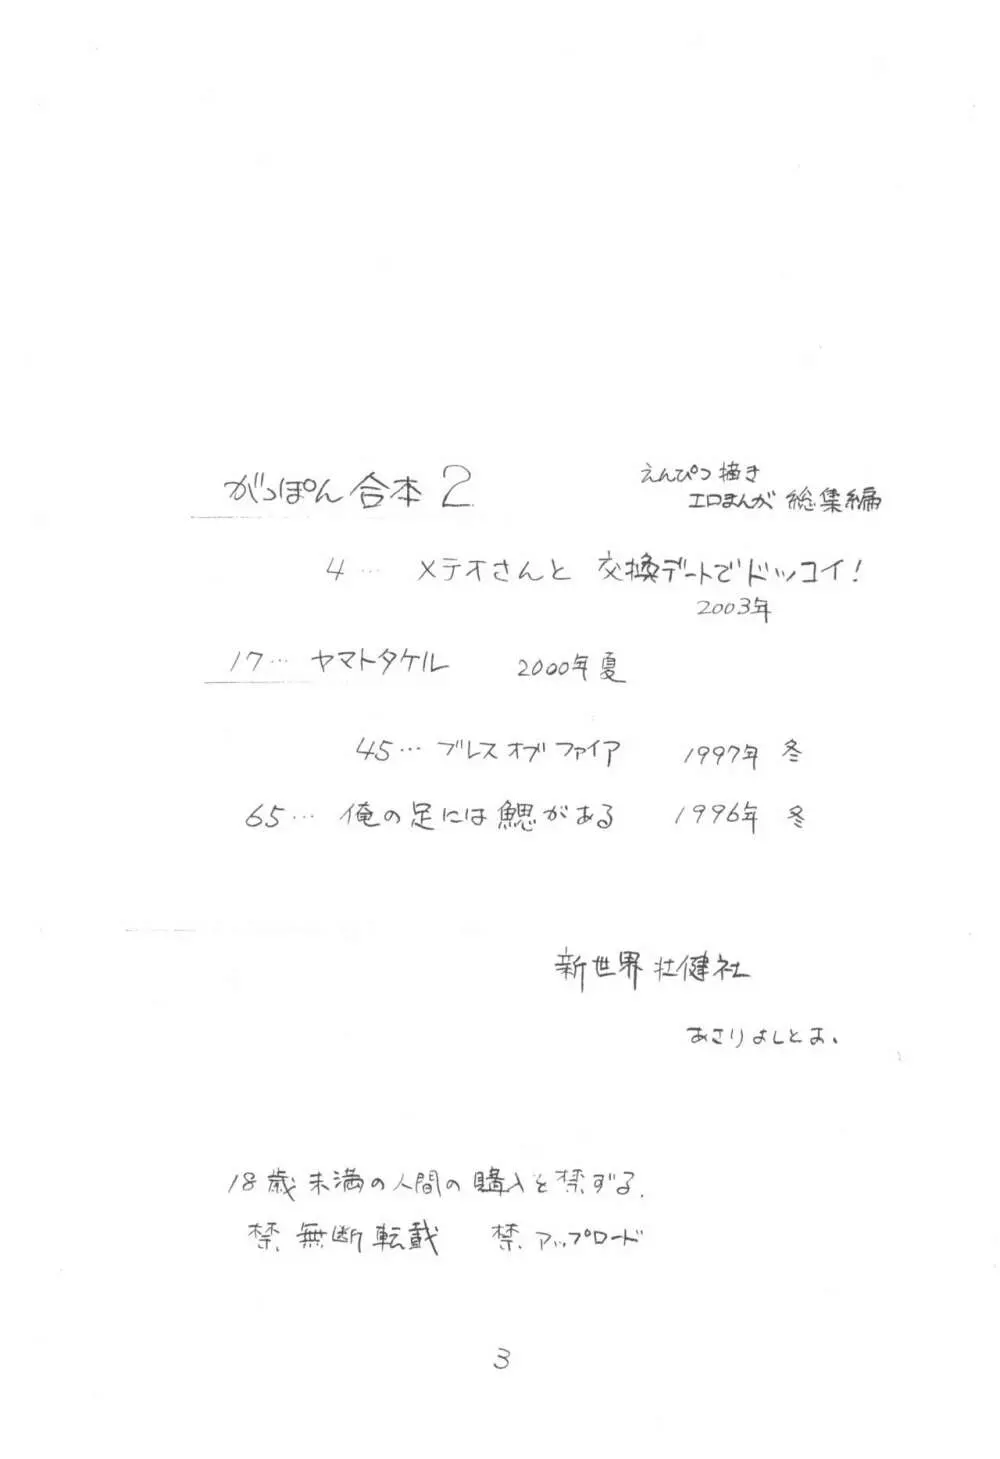 がっぽん 合本 2
えんぴつ描き
エロまんが 総集編
4… メテオさんと 交換デートでドッコイ!
2003年
17… ヤマトタケル 2000年 夏
45… ブレス オブ ファイア 1997年 冬
65… 俺の足には鰓がある 1996年 冬
新世界 壮健社
あさりよしとお、
18歳未満の人間の購入を禁ずる.
禁. 無断転載 禁. アップロード
3